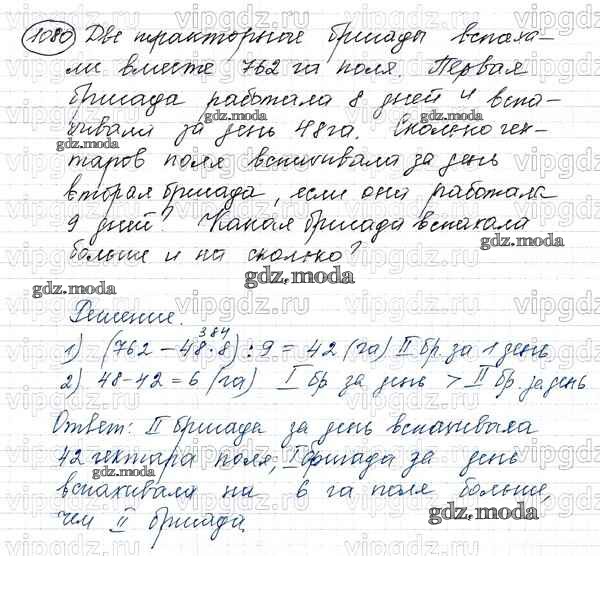 1080 Две тракторные бригады вспаха-
ли вместе 762 га поля. Первая
бригада работала 8 дней и вспа-
хивала за день 48 га. Сколько гек-
таров поля вспахивала за день
вторая бригада, если она работала
9 дней? Какая бригада вспахала
больше и на сколько?
Решение.
384
1) (762 - 48·8) : 9 = 42 (га) II бр. за 1 день
2) 48-42 = 6 (га) I бр. за день > II бр. за день
Ответ: II бригада за день вспахивала
42 гектара поля; I бригада за день
вспахивала на 6 га поля больше,
чем II бригада.
vipgdz.ru
gdz.moda